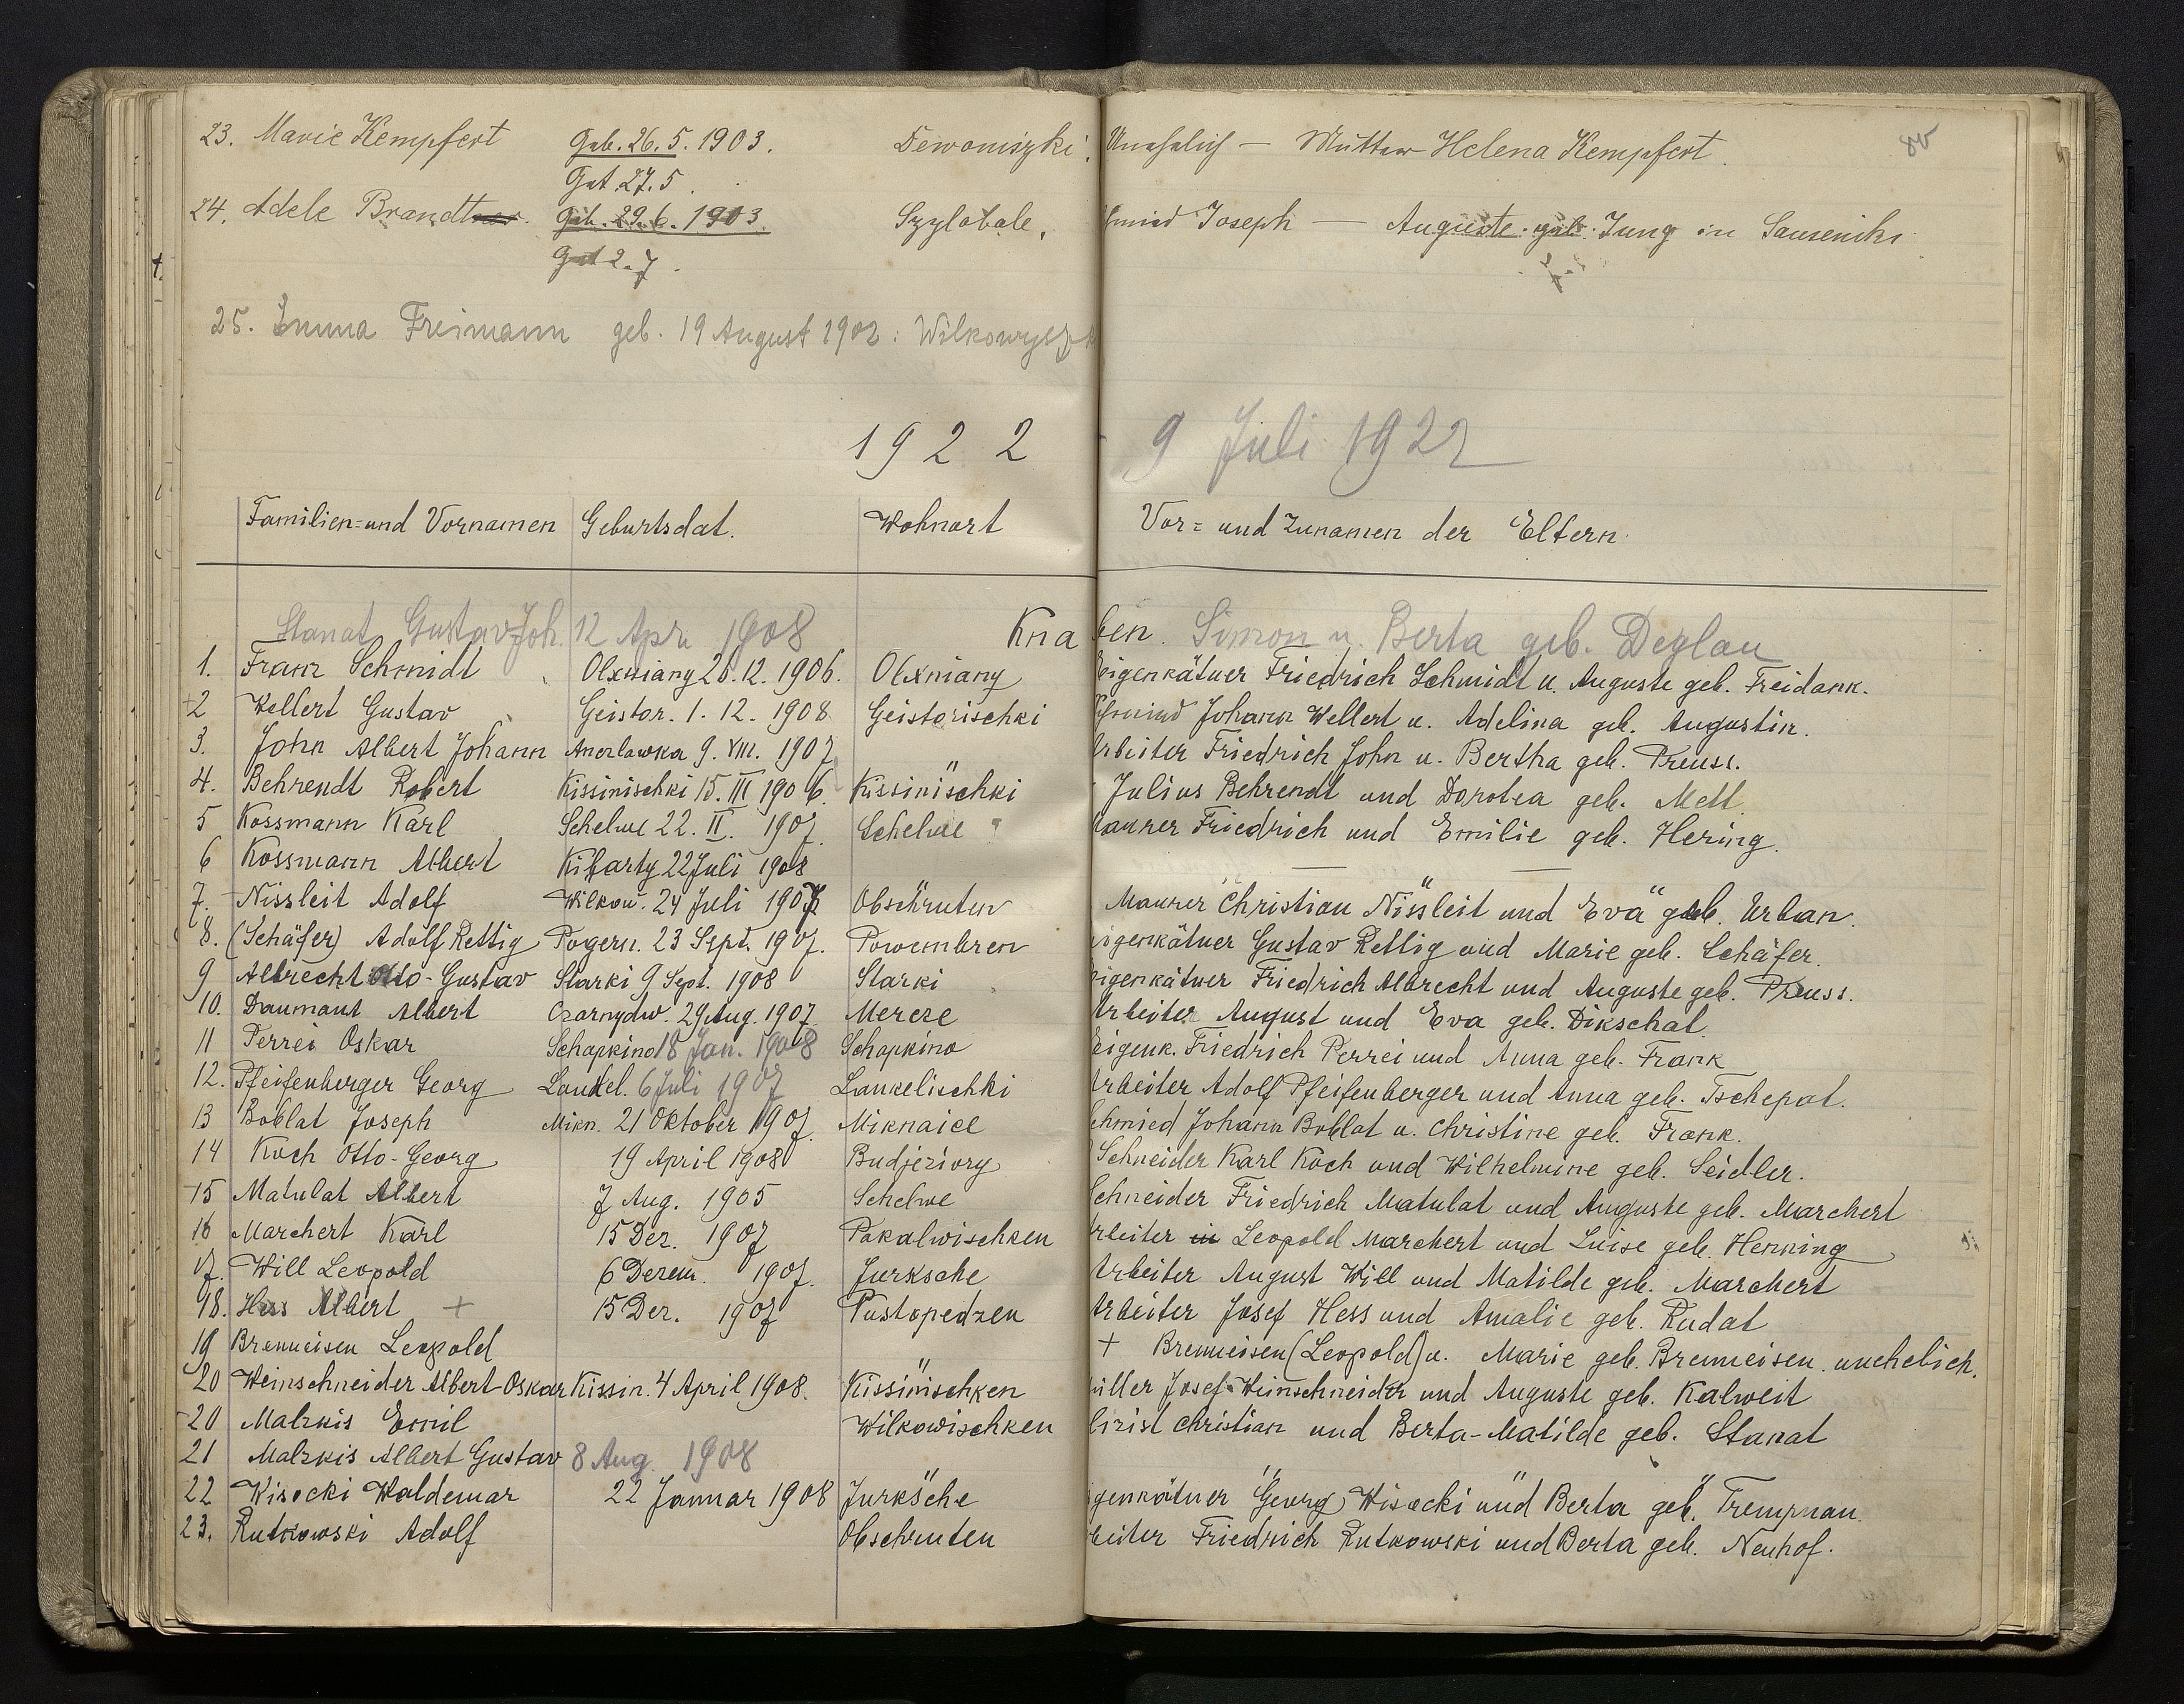 80
23. Marie Kempfert Geb. 26. 5. 1903. Dewoniszki. Unehelich — Mutter Helena Kempfert.
Get 27. 5.
24. Adele Brandt Geb. 29. 6. 1903. Szylobale, Schmied Joseph — Auguste geb. Jung in Sausenicki
Get 2. 7.
25. Emma Freimann geb. 19 August 1902: Wilkowyszk
1922 9 Juli 1922
Familien= und Vornamen Geburtsdat. Wohnort Vor= und Zunamen der Eltern.
Knaben.
Stanat Gustav Joh. 12 Apr. 1908 Simon u. Berta geb. Deglau
1. Franz Schmidt Olxniany 26. 12. 1906. Olxniany Eigenkätner Friedrich Schmidt u. Auguste geb. Freidank.
2 Wellert Gustav Geistor. 1. 12. 1908 Geistorischki Schmied Johann Wellert u. Adelina geb. Augustin.
3. John Albert Johann Anerlawka 9. VIII. 1907 Arbeiter Friedrich John u. Bertha geb. Preuss.
4. Behrendt Robert Kissinischki 15. III 1906. Kissinischki Julius Behrendt und Dorotea geb. Mett.
5 Kossmann Karl Schelwe 22. II. 1907. Schelwe ? Maurer Friedrich und Emilie geb. Hering.
6 Kossmann Albert Kibarty 22 Juli 1908 —
7. Nissleit Adolf Wilkow. 24 Juli 1907 Obschruten Maurer Christian Nissleit und Eva geb. Urban.
8. (Schäfer) Adolf Rettig Pogern. 23 Sept. 1907. Powembren Eigenkätner Gustav Rettig und Marie geb. Schäfer.
9 Albrecht Otto-Gustav Starki 9 Sept. 1908 Starki Eigenkätner Friedrich Albrecht und Auguste geb. Preuss.
10. Daumant Albert Czarnydw. 29 Aug. 1907. Mercze Arbeiter August und Eva geb. Dikschat.
11 Perrei Oskar Schapkino 18 Jan. 1908 Schapkino Eigenk. Friedrich Perrei und Anna geb. Frank
12. Pfeifenberger Georg Lankel. 6 Juli 1907 Lankelischki Arbeiter Adolf Pfeifenberger und Anna geb. Tschepat.
13 Boblat Joseph Mikn. 21 Oktober 1907. Miknaice Schmied Johann Boblat u. Christine geb. Frank.
14 Koch Otto-Georg 19 April 1908 Budjeziory Schneider Karl Koch und Wilhelmine geb. Seidler.
15 Matulat Albert 7 Aug. 1905 Schelwe Schneider Friedrich Matulat und Auguste geb. Marchert
16 Marchert Karl 15 Dez. 1907 Pokalwischken Arbeiter Leopold Marchert und Luise geb. Henning
17. Will Leopold 6 Dezem. 1907. Jurksche Arbeiter August Will und Matilde geb. Marchert
18. Hess Albert + 15 Dez. 1907 Pustopedzen Arbeiter Josef Hess und Amalie geb. Rudat
19 Brenneisen Leopold + Brenneisen (Leopold) u. Marie geb. Brenneisen. unehelich.
20 Weinschneider Albert-Oskar Kissin. 4 April 1908. Kissinischken Müller Josef Weinschneider und Auguste geb. Kalweit
20 Malzkis Emil Wilkowischken Christian und Berta-Matilde geb. Stanat
21 Malzkis Albert Gustav 8 Aug. 1908
22 Wisocki Waldemar 22 Januar 1908 Jurksche Eigenkätner Georg Wisocki und Berta geb. Trempnau.
23. Rutkowski Adolf Obschruten Arbeiter Friedrich Rutkowski und Berta geb. Neuhof.